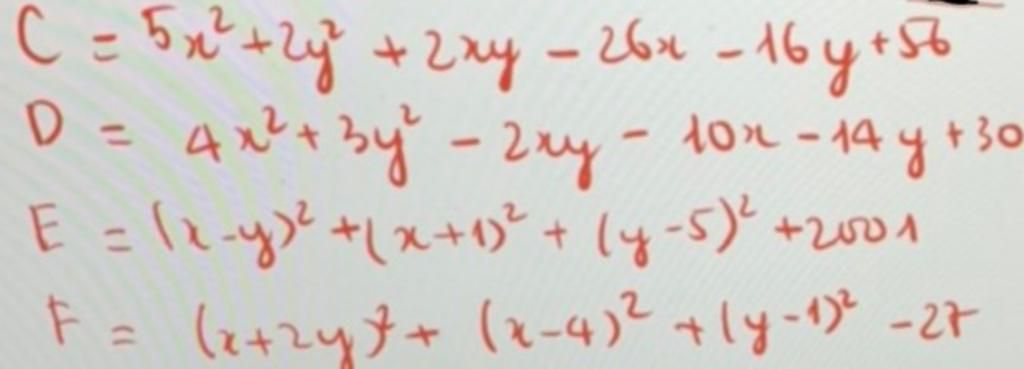 C = 5x² + 2y² + 2xy - 26x - 16y + 56
D = 4x² + 3y² - 2xy - 10x - 14y + 30
E = (x-y)² + (x+1)² + (y-5)² + 2001
F = (x+2y)² + (x-4)² + (y-1)² - 27